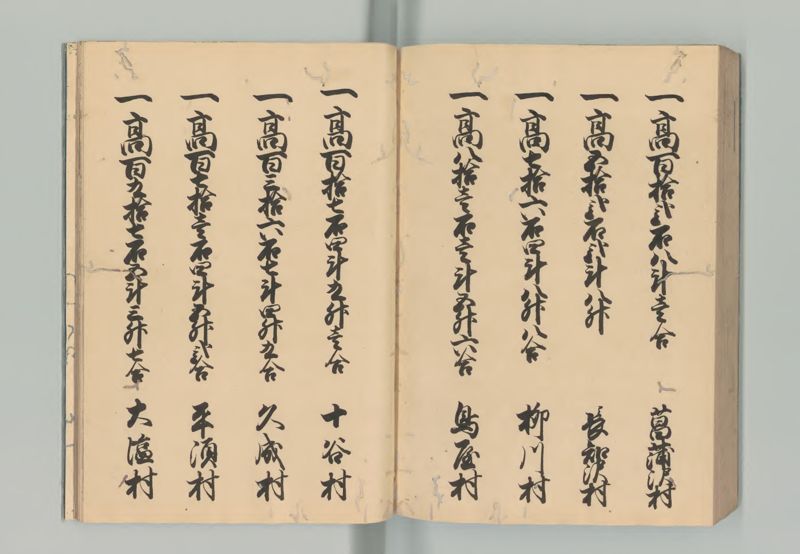 一高百拾弐石八斗壱合　菖蒲沢村
一高五拾弐石弐斗八升　長知沢村
一高七拾六石四斗八升八合　柳川村
一高八拾壱石壱斗五升六合　鳥屋村
一高百拾七石四斗九升壱合　十谷村
一高百三拾六石七斗四升九合　久成村
一高百七拾壱石四斗五升弐合　平須村
一高百九拾七石五斗三升七合　大塩村